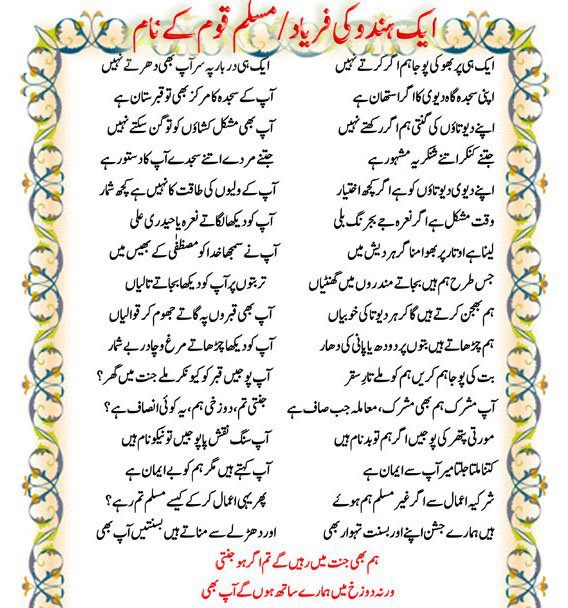 ایک ہندو کی فریاد / مسلم قوم کے نام
ایک ہی پربھو کی پوجا ہم اگر کرتے نہیں ایک ہی دربار پہ سر آپ بھی دھرتے نہیں
اپنی سجدہ گاہ دیوی کا اگر استھان ہے آپ کے سجدہ کا مرکز بھی تو قبرستان ہے
اپنے دیوتاؤں کی گنتی ہم اگر رکھتے نہیں آپ بھی مشکل کشاؤں کو تو گن سکتے نہیں
جتنے کنکر اتنے شنکر یہ مشہور ہے جتنے مردے اتنے سجدے آپ کا دستور ہے
اپنے دیوی دیوتاؤں کو ہے اگر کچھ اختیار آپ کے ولیوں کی طاقت کا نہیں ہے کچھ شمار
وقت مشکل ہے اگر نعرہ جے بجرنگ بلی آپ کو دیکھا لگاتے نعرہ یا حیدری علی
لیتا ہے اوتار پربھو امنا گر ہر دیش میں آپ نے سمجھا خدا کو مصطفٰی کے بھیس میں
جس طرح ہم ہیں بجاتے مندروں میں گھنٹیاں تربتوں پر آپ کو دیکھا بجاتے تالیاں
ہم بھجن کرتے ہیں گا کر ہر دیوتا کی خوبیاں آپ بھی قبروں پہ گاتے جھوم کر قوالیاں
ہم چڑھاتے ہیں بتوں پر دودھ یا پانی کی دھار آپ کو دیکھا چڑھاتے مرغ و چادر بے شمار
بت کی پوجا ہم کریں ہم کو ملے نار سقر آپ پوجیں قبر کو کیونکر ملے جنت میں گھر؟
آپ مشرک ہم بھی مشرک، معاملہ جب صاف ہے جنتی تم، دوزخی ہم، یہ کوئی انصاف ہے؟
مورتی پتھر کی پوجیں اگر ہم تو بدنام ہیں آپ سنگ نقش پا پوجیں تو نیکو نام ہیں
کتنا ملتا جلتا میر آپ سے ایمان ہے آپ کہتے ہیں مگر ہم کو بے ایمان ہے
شرکیہ اعمال سے اگر غیر مسلم ہم ہوئے پھر یہی اعمال کر کے کیسے مسلم تم رہے؟
ہیں ہمارے جشن اپنے اور بسنت تہوار بھی اور دھڑلے سے مناتے ہیں بسنتیں آپ بھی
ہم بھی جنت میں رہیں گے تم اگر ہو جنتی
ورنہ دوزخ میں ہمارے ساتھ ہوں گے آپ بھی